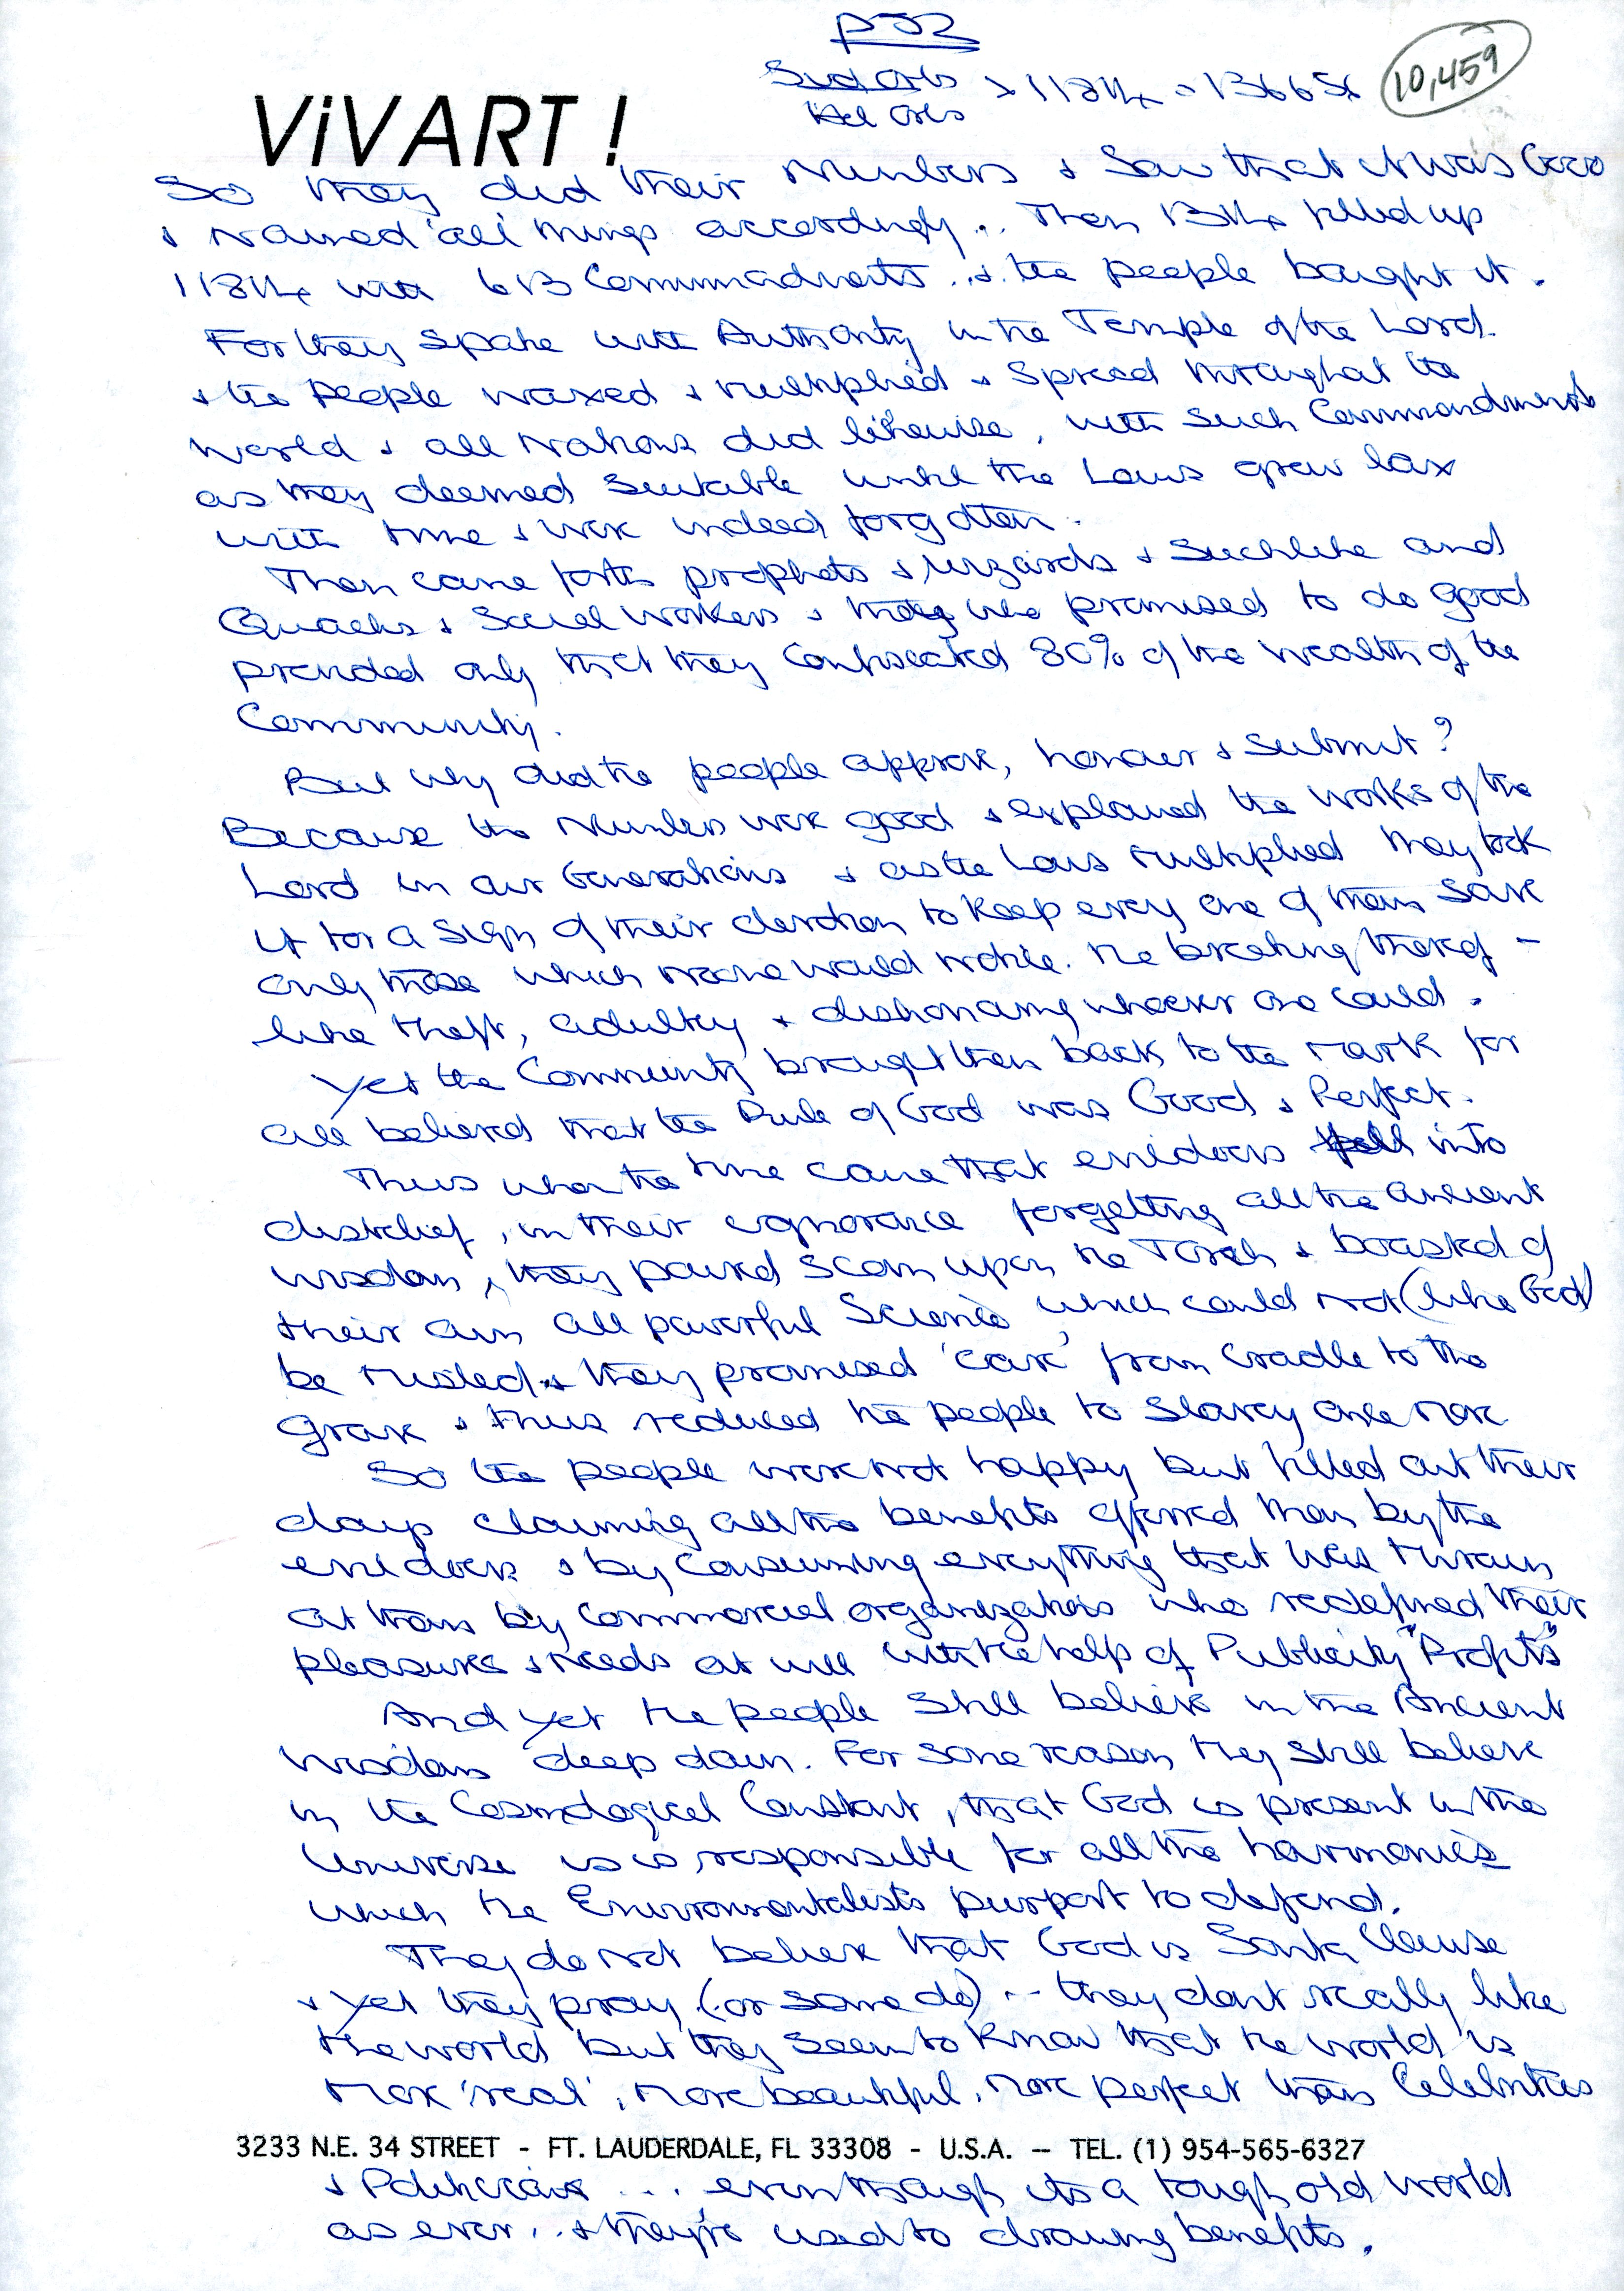 p52
10,459
ViVART !
So they did their Numbers & Saw that it was Good
& Named all things accordingly .. Then filled up
with 613 Commandments .. & the people bought it .
For they Spake with Authority in the Temple of the Lord.
& the People waxed & multiplied & Spread throughout the
World & all Nations did likewise, with such Commandments
as they deemed Suitable until the Laws grew lax
with time & were indeed forgotten.
Then came forth prophets & wizards & Suchlike and
Quacks & Social Workers & they who promised to do good
provided only that they confiscated 80% of the wealth of the
Community.
But why did the people approve, honour & Submit?
Because the Numbers were good & explained the works of the
Lord in our Generations & as the Laws multiplied they took
it for a sign of their devotion to keep every one of them save
only those which none would notice the breaking thereof –
like theft, adultry & dishonoring whoever one could .
Yet the Community brought them back to the mark for
all believed that the Rule of God was Good & Perfect.
Thus when the time came that fell into
disbelief, in their ignorance forgetting all the ancient
wisdom, they poured scorn upon the Torah & boasted of
their own all powerful Science which could not (like God)
be & they promised 'care' from cradle to the
grave & thus reduced the people to slavery once more
So the people were not happy but filled out their
days claiming all the benefits offered them by the
& by consuming everything that was thrown
at them by commercial organizations who redefined their
pleasures & needs at will with the help of Publicity "Profits"
And yet the people still believe in the Ancient
Wisdom deep down. For some reason they still believe
in the Cosmological Constant, that God is present in the
Universe is responsible for all the harmonies
which the Environmentalists purport to defend.
They do not believe that God is Santa Clause
& yet they pray (or some do) .. they dont really like
the world but they seem to know that the world is
more 'real', more beautiful, more perfect than Celebrities
3233 N.E. 34 STREET - FT. LAUDERDALE, FL 33308 - U.S.A. -- TEL. (1) 954-565-6327
& Politicians ... even though its a tough old world
as ever .. & they're used to drawing benefits .